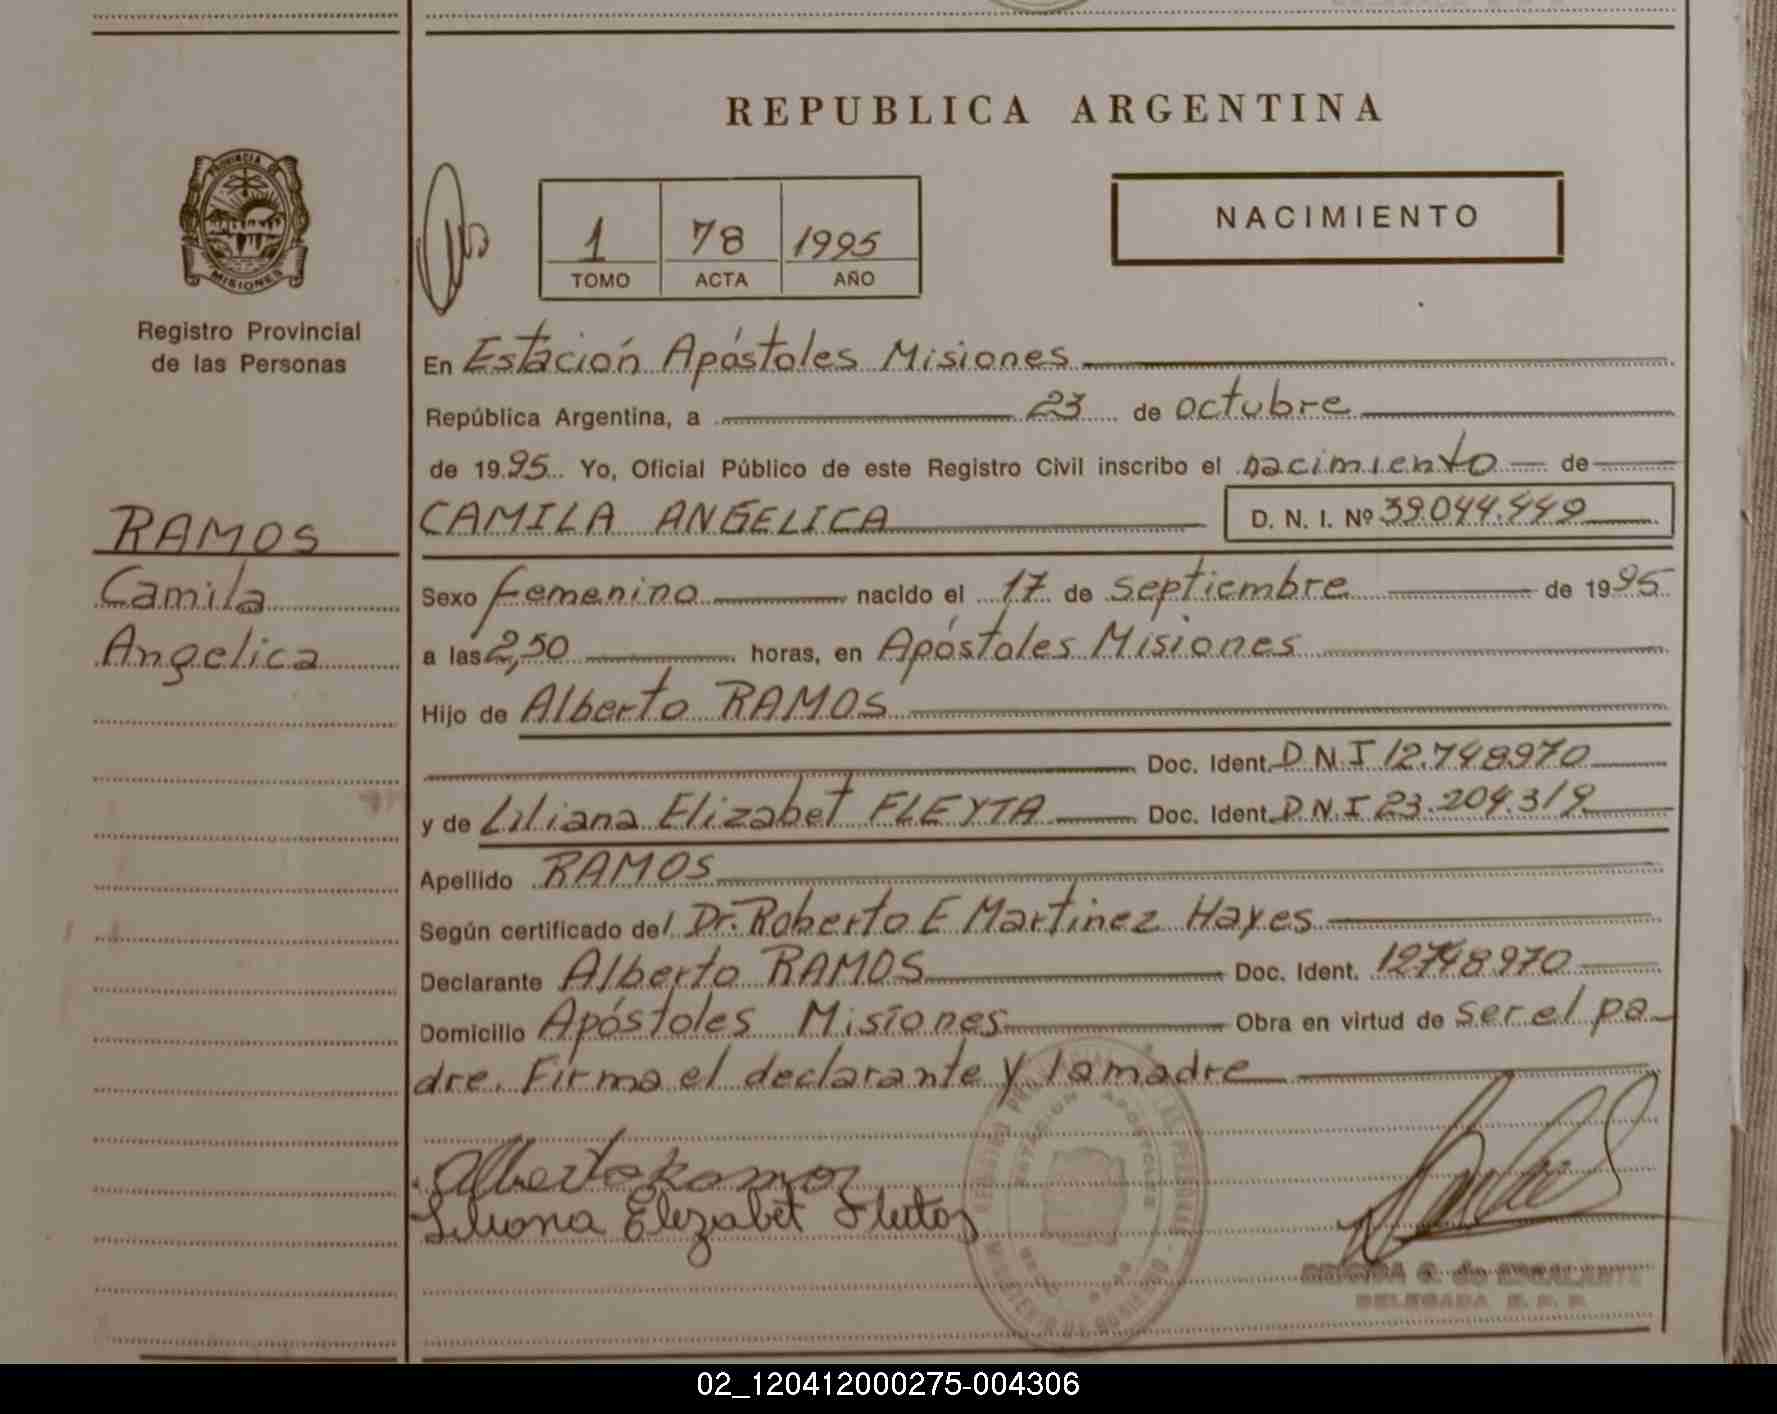 REPUBLICA ARGENTINA
PROVINCIA DE
MISIONES
Registro Provincial
de las Personas
1 78 1995
TOMO ACTA AÑO
NACIMIENTO
En Estación Apóstoles Misiones
República Argentina, a 23 de octubre
de 1995 Yo, Oficial Público de este Registro Civil inscribo el nacimiento de
RAMOS
Camila
Angelica
CAMILA ANGELICA D. N. I. Nº 39.044.449
Sexo femenino nacido el 17 de septiembre de 1995
a las 2,50 horas, en Apóstoles Misiones
Hijo de Alberto RAMOS
Doc. Ident. D.N.I 12.748970
y de Liliana Elizabet FLEYTA Doc. Ident. D.N.I 23.204.319
Apellido RAMOS
Según certificado del Dr. Roberto E Martinez Hayes
Declarante Alberto RAMOS Doc. Ident. 12748970
Domicilio Apóstoles Misiones Obra en virtud de ser el pa-
dre. Firma el declarante y la madre
Alberto Ramos
Liliana Elizabet Fleita
REGISTRO PROVINCIAL DE LAS PERSONAS
ESTACION APOSTOLES
MINISTERIO DE GOBIERNO
G. de ESCALANTE
DELEGADA R. P. P.
02_120412000275-004306